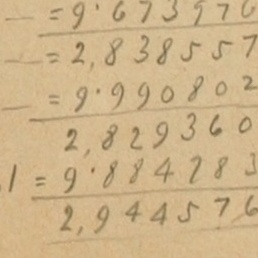 — = 9·673976
— = 2,838557
— = 9·990802
2,829360
1 = 9·884783
2,944576